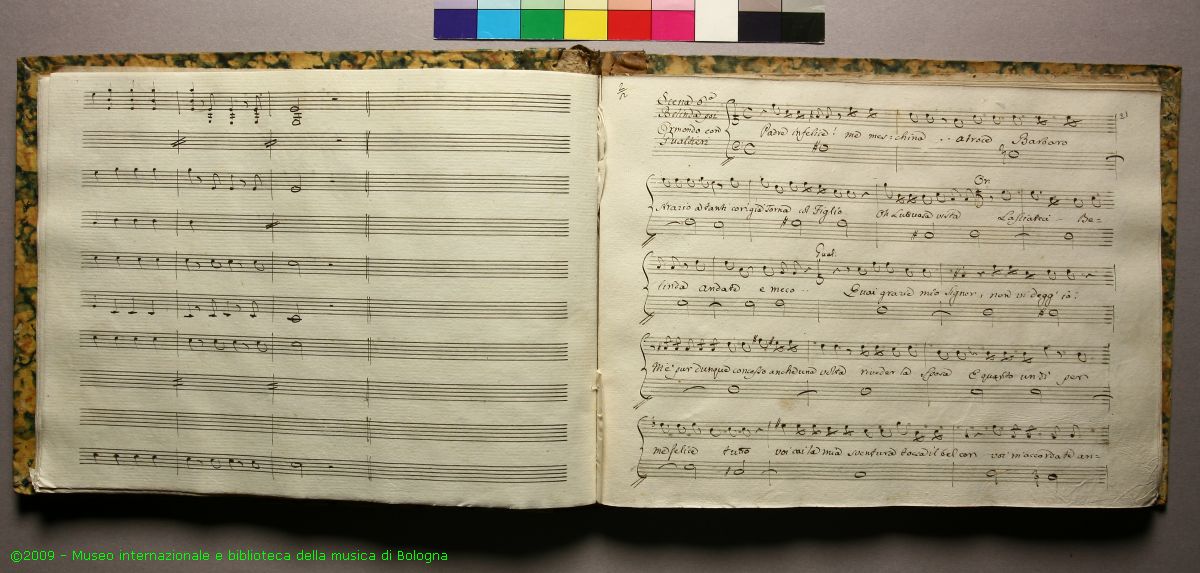 Scena 9.a
Belinda poi
Ormondo con
Gualtieri
21
Padre infelice! me mes=china .. atroce Barbaro
Strazio a tanti cori già Torna il Figlio Oh Luttuosa vista Lasciatea - Be=
Or.
linda andate e meco ... Quai grazie mio Signor, non vi degg'io:
Gual.
M'è pur dunque concesso anche una volta riveder la sposa E questo un dì per
me felice tutto voi cui la mia sventura tocca il bel cor voi m'accordate an=
©2009 - Museo internazionale e biblioteca della musica di Bologna